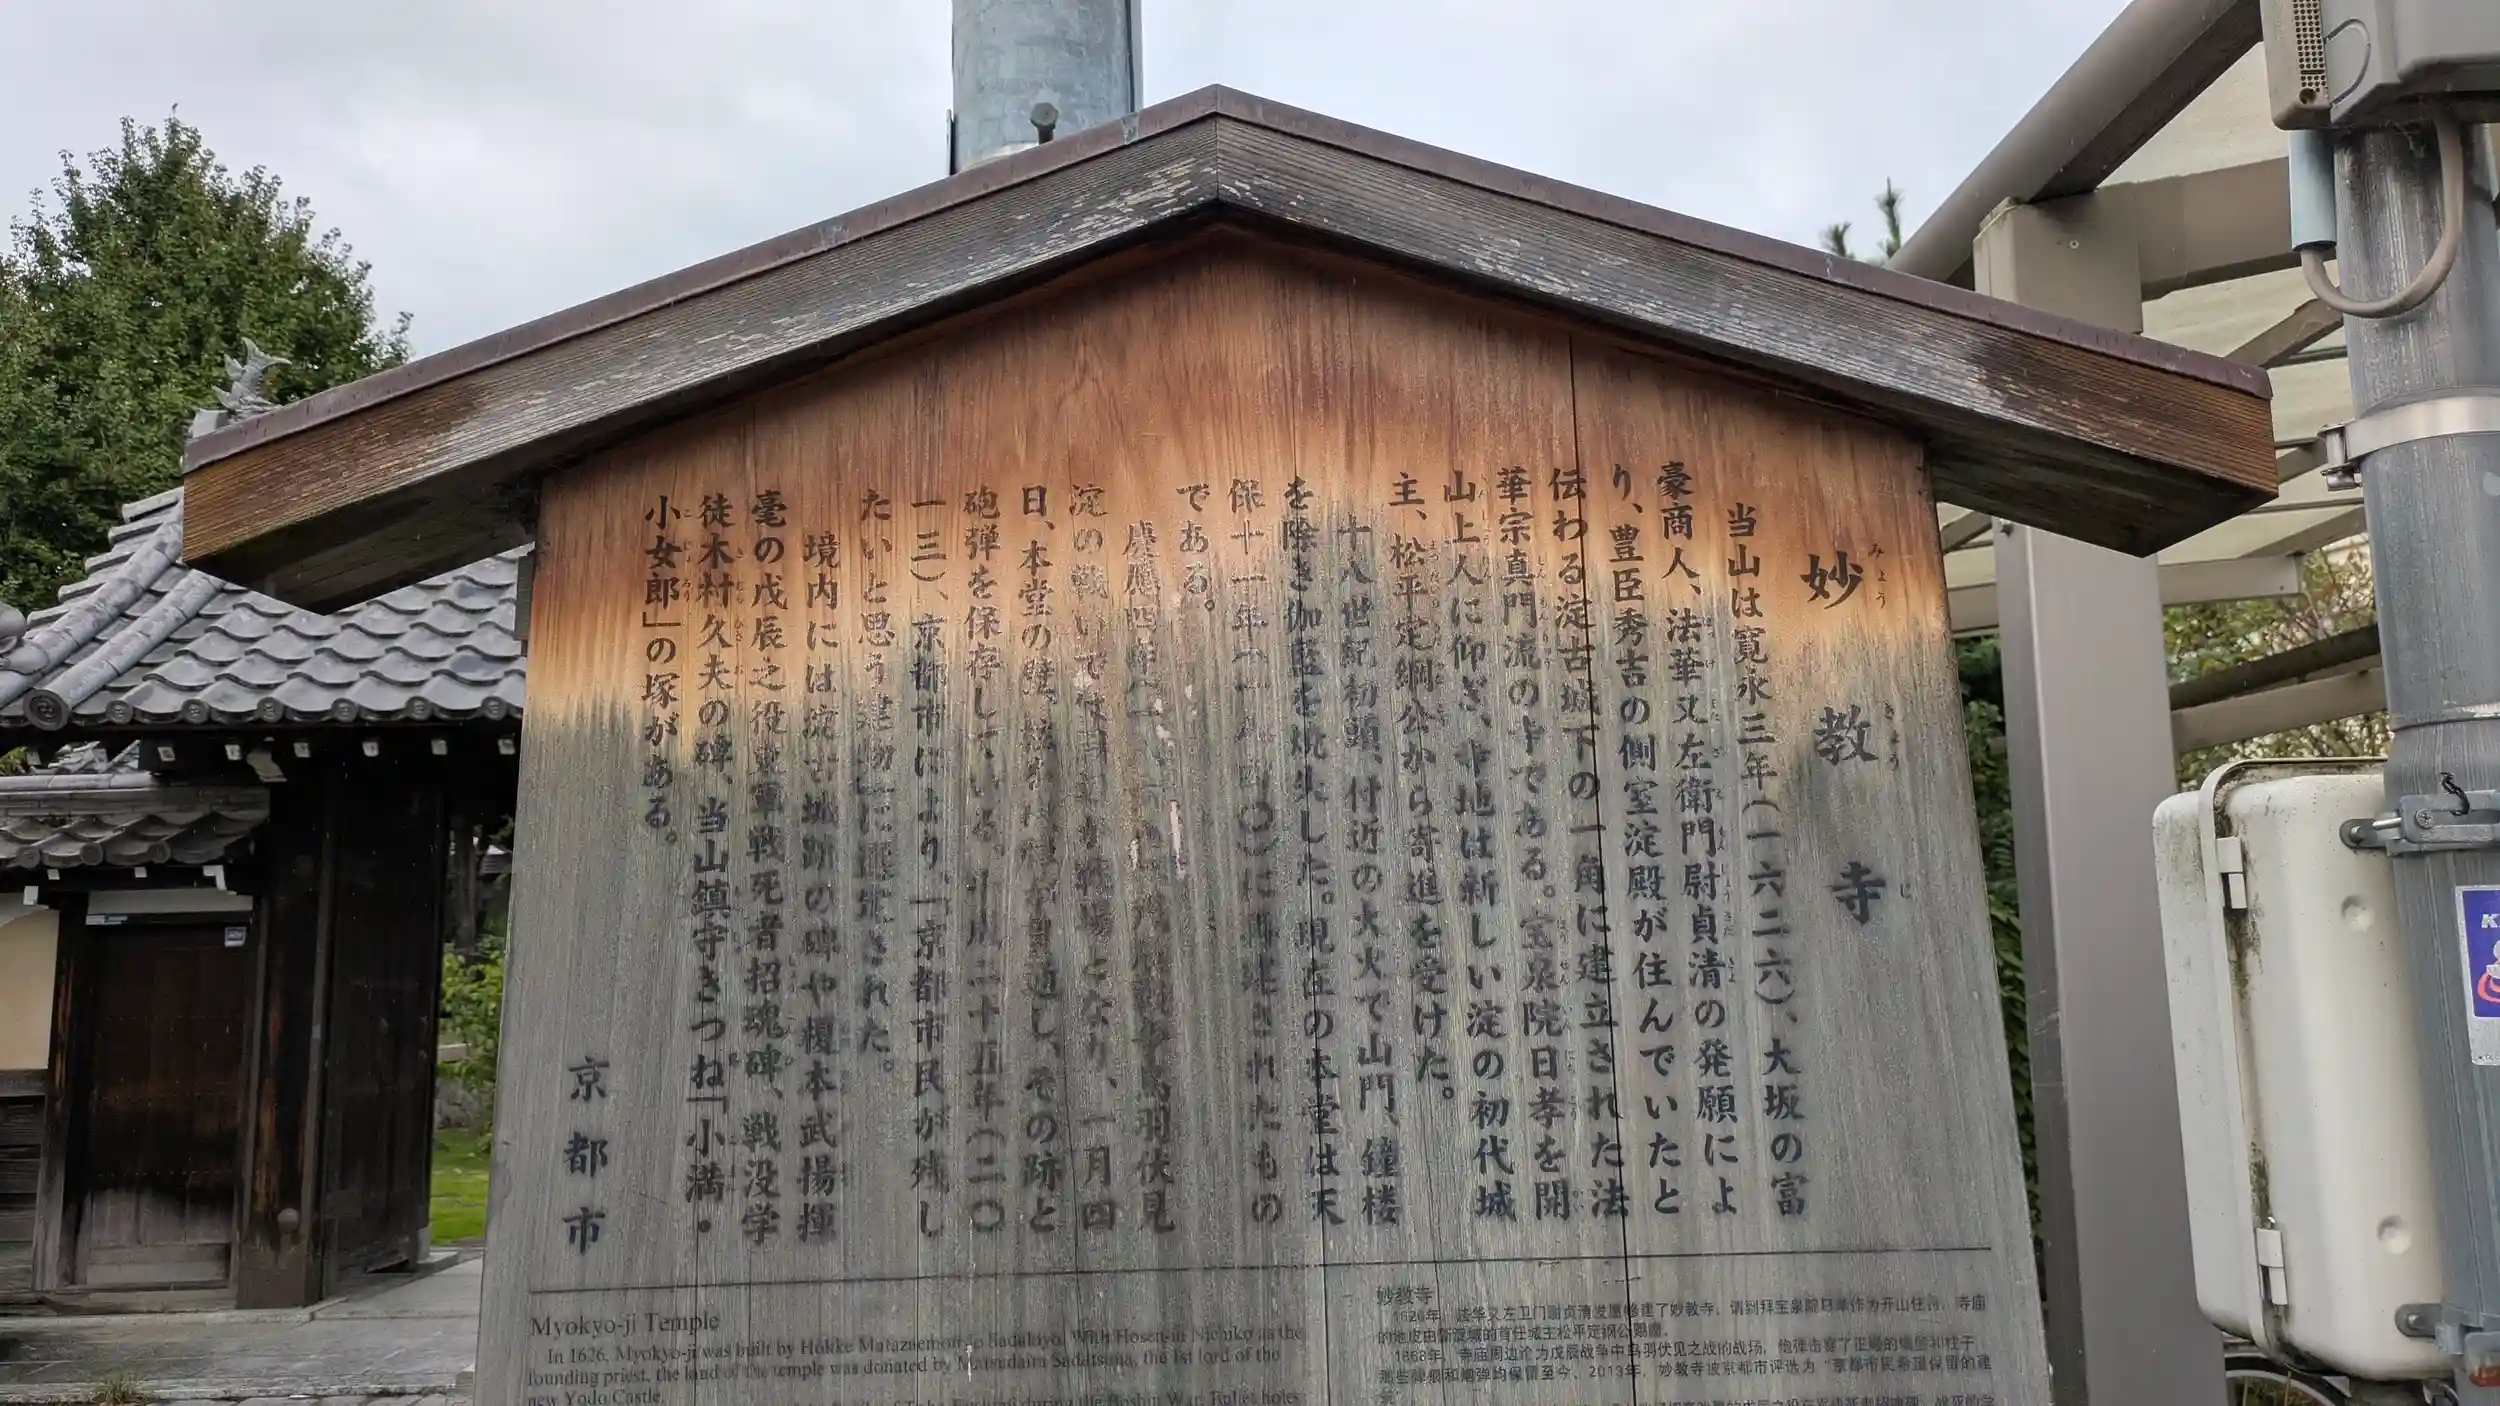 妙教寺
みょうきょうじ
当山は寛永三年(一六二六)、大坂の富
豪商人、法華又左衛門尉貞清の発願によ
り、豊臣秀吉の側室淀殿が住んでいたと
伝わる淀古城下の一角に建立された法
華宗真門流の寺である。宝泉院日孝を開
山上人に仰ぎ、寺地は新しい淀の初代城
主、松平定綱公から寄進を受けた。
十八世紀初頭、付近の大火で山門、鐘楼
を除き伽藍を焼失した。現在の本堂は天
保十一年(一八四〇)に再建されたもの
である。
慶應四年 鳥羽伏見
淀の戦いでは 戦場となり、一月四
日、本堂の壁、 貫通し、その跡と
砲弾を保存している。平成二十五年(二〇
一三)、京都市により、「京都市民が残し
たいと思う建物」に選定された。
境内には淀古城跡の碑や榎本武揚揮
毫の戊辰之役東軍戦死者招魂碑、戦没学
徒木村久夫の碑、当山鎮守きつね「小満・
小女郎」の塚がある。
京都市
Myokyo-ji Temple
In 1626, Myokyo-ji was built by Hokke Matazaemon-jo Sadakiyo. With Hosen-in Nichiko as the
founding priest, the land of the temple was donated by Matsudaira Sadatsuna, the 1st lord of the
new Yodo Castle.
during the Boshin War. Bullet holes
妙教寺
1626年，法华又左卫门尉贞清发愿修建了妙教寺，请到拜宝泉院日孝作为开山住持，寺庙
的地皮由新淀城的首任城主松平定纲公赐赠。
1868年，寺庙周边沦为戊辰战争中鸟羽伏见之战的战场，炮弹击穿了正殿的墙壁和柱子，
那些弹痕和炮弹均保留至今。2013年，妙教寺被京都市评选为“京都市民希望保留的建